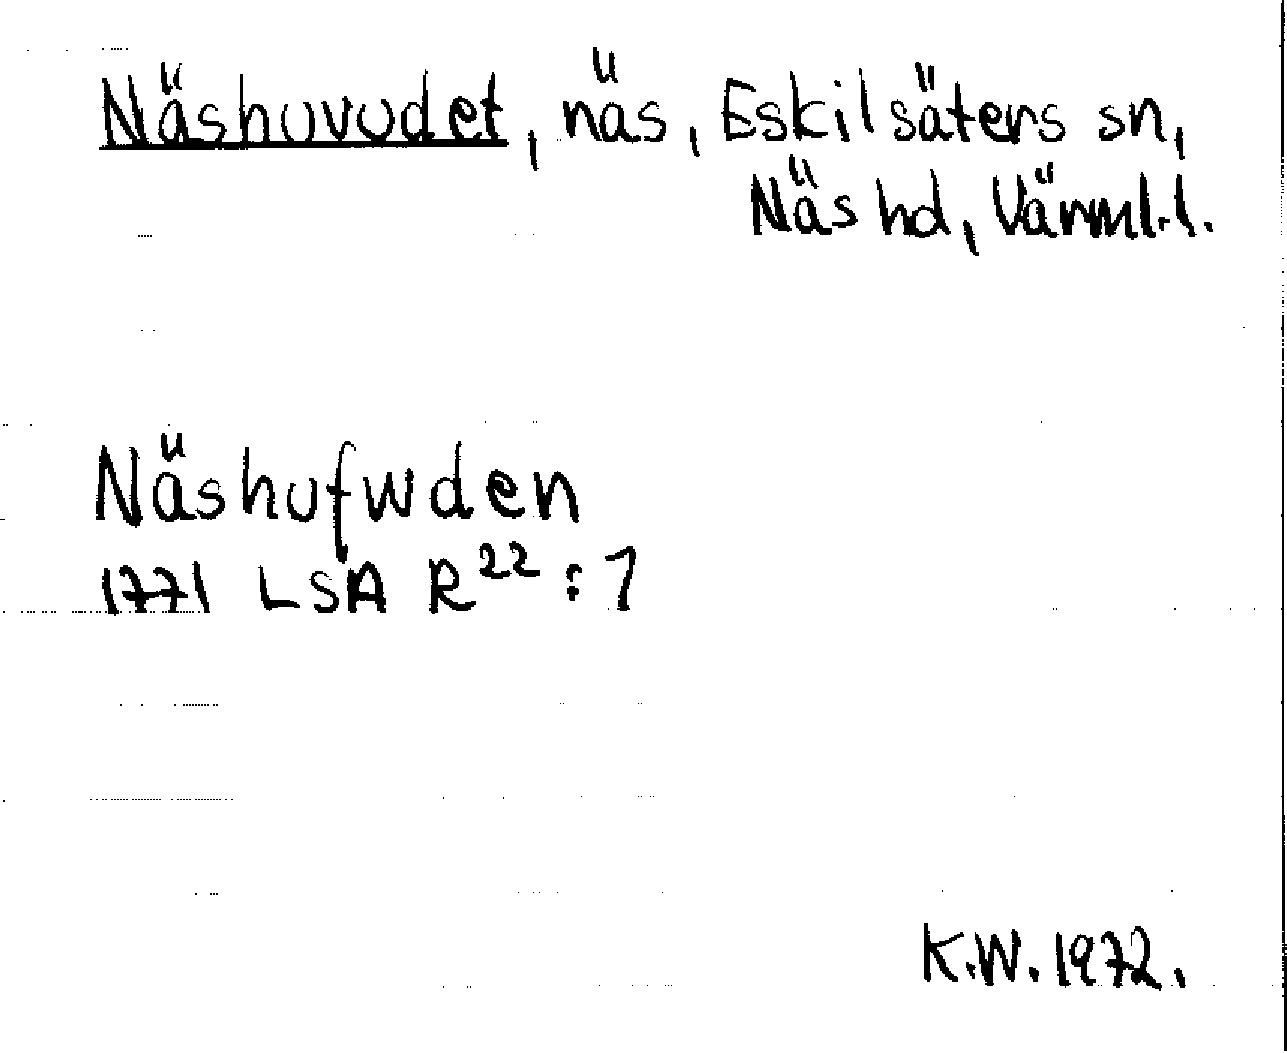 Näshuvudet, näs, Eskilsäters sn,
Näs hd, Värml.l.
Näshufwden
1771 LSA R22:1
K.W. 1972.